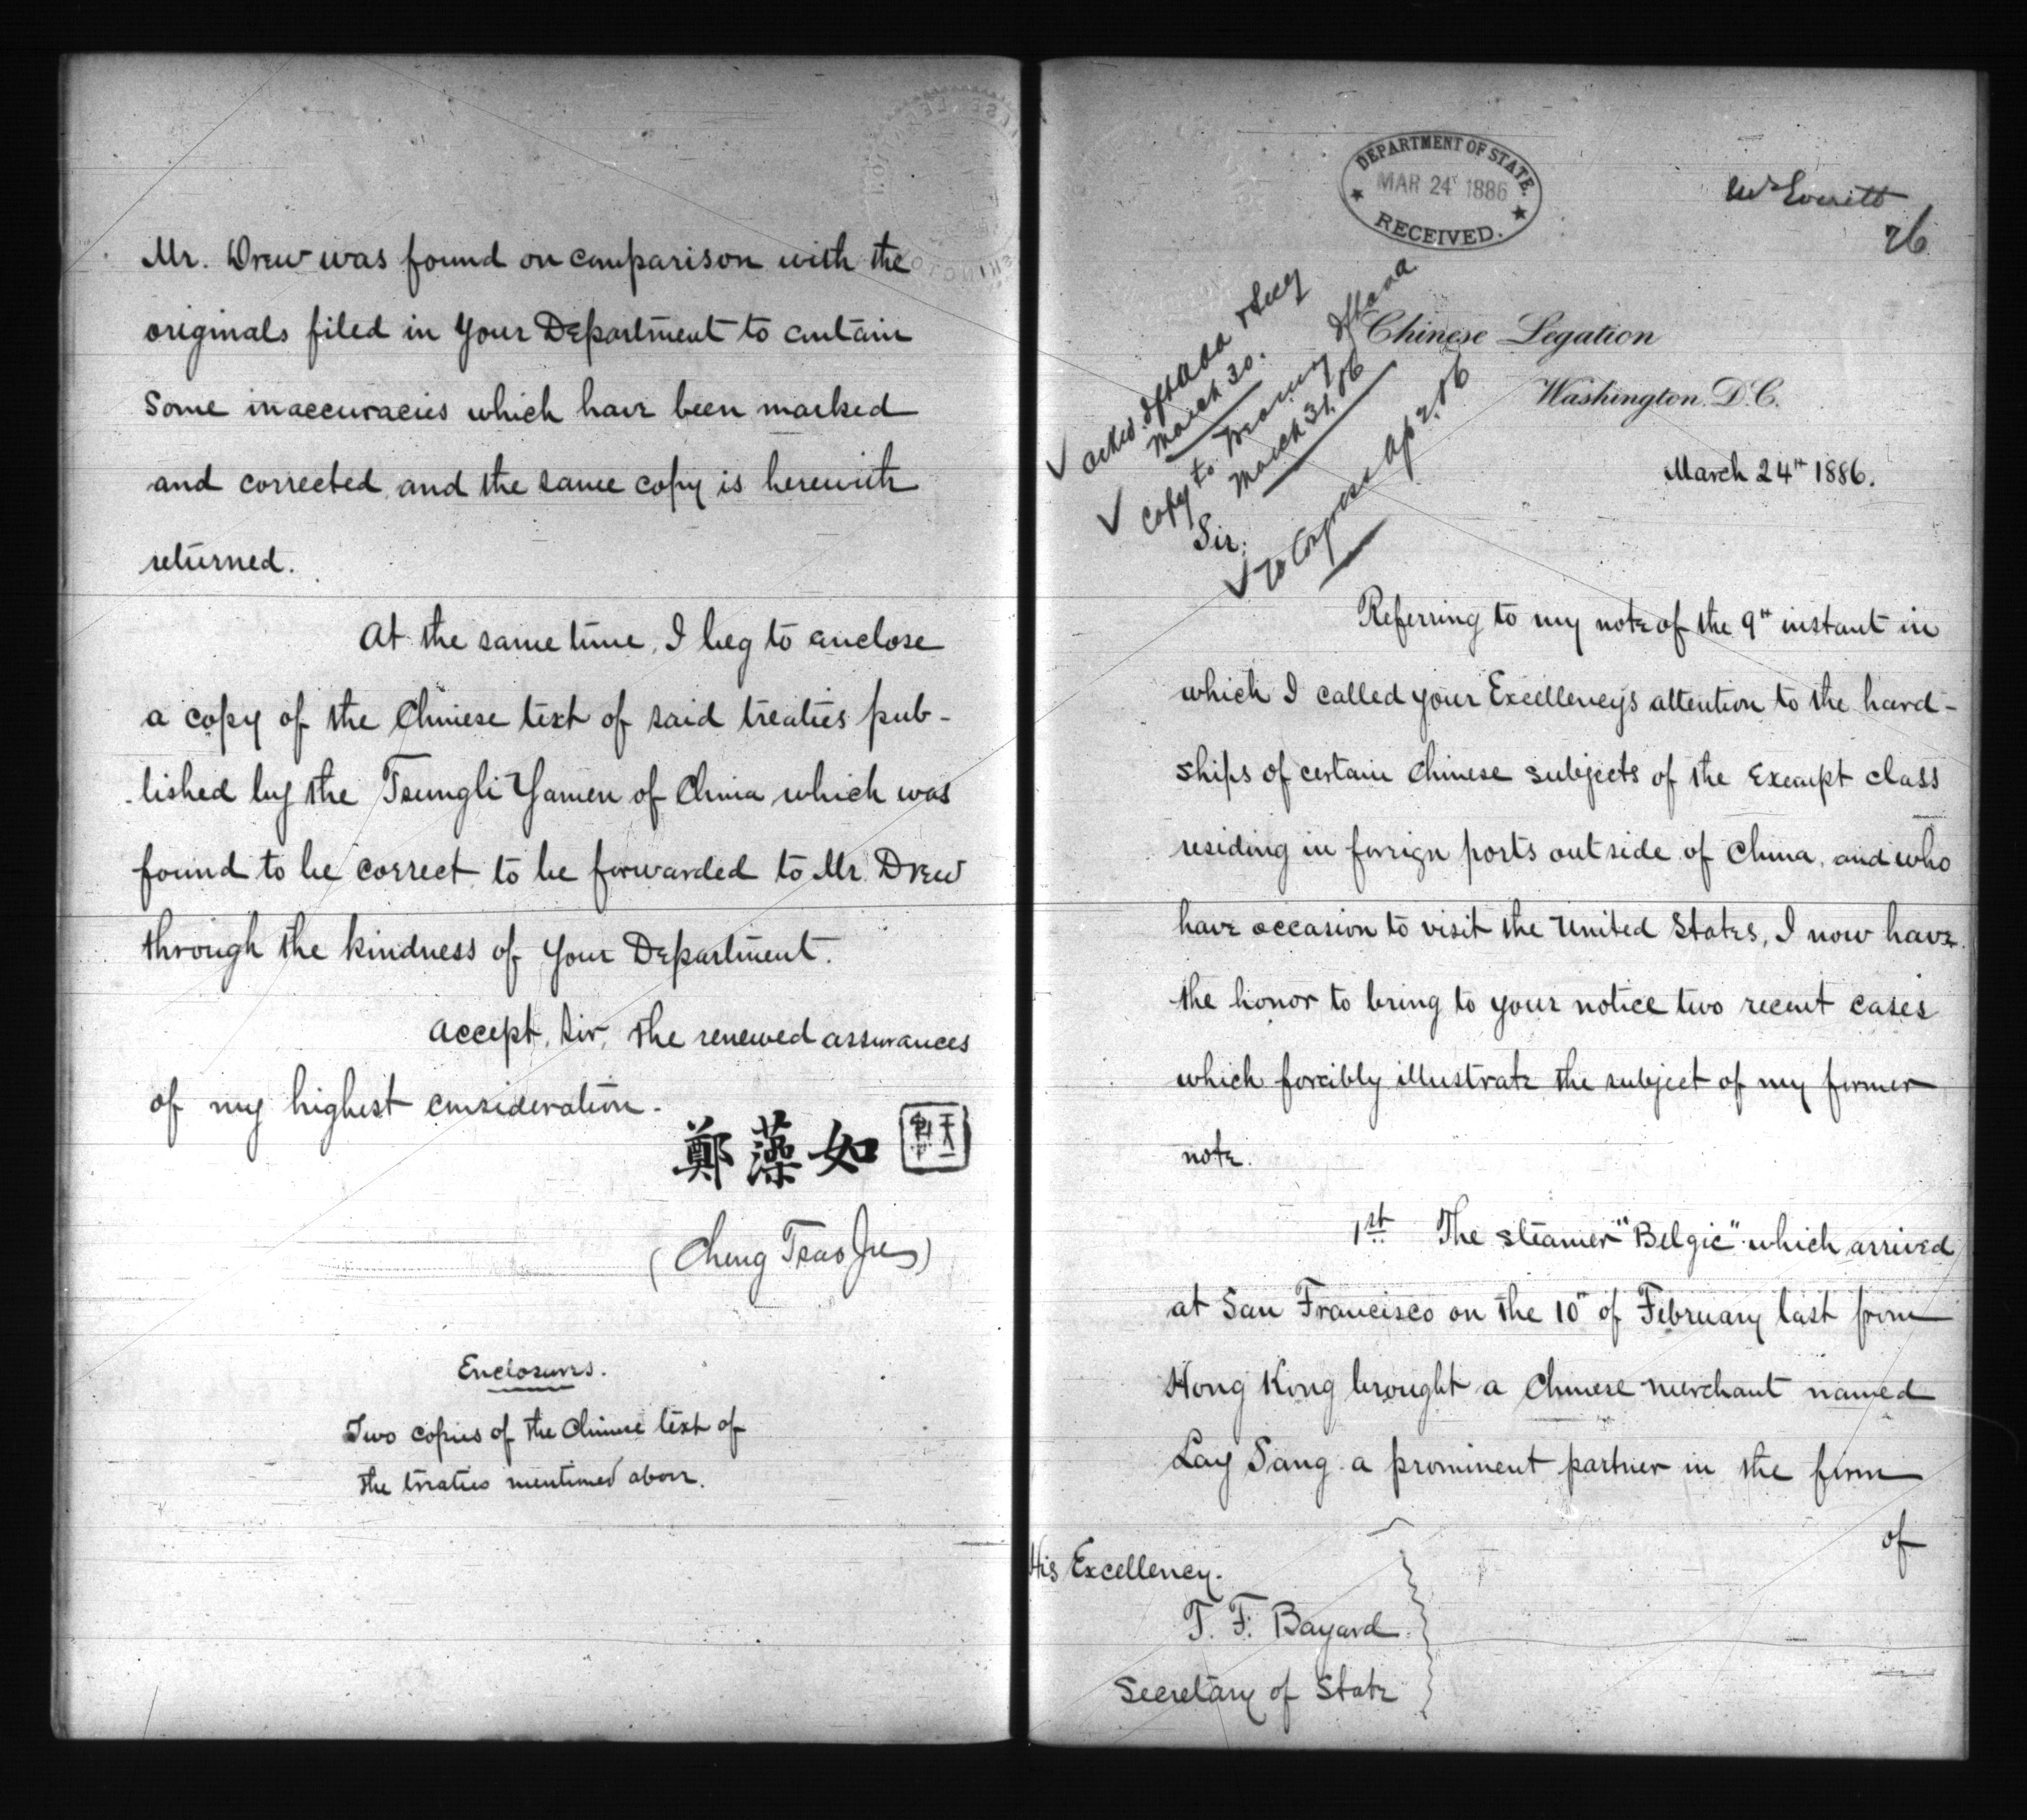 Mr. Drew was found on comparison with the
originals filed in your Department to contain
some inaccuracies which have been marked
and corrected, and the same copy is herewith
returned.
At the same time, I beg to enclose
a copy of the Chinese text of said treaties pub-
lished by the Tsungli Yamen of China, which was
found to be correct, to be forwarded to Mr. Drew
through the kindness of your Department.
Accept, Sir, the renewed assurances
of my highest consideration.
鄭藻如
(Cheng Tsao Ju)
Enclosures.
Two copies of the Chinese text of
the treaties mentioned above.
DEPARTMENT OF STATE.
MAR 24 1886
RECEIVED.
Mr Everett
26
March 30.
Copy to Treasury
March 31, 86
To Congress Ap 2, 86
Chinese Legation
Washington. D.C.
March 24th 1886.
Sir:
Referring to my note of the 9th instant in
which I called your Excellency's attention to the hard-
ships of certain Chinese subjects of the exempt class
residing in foreign ports outside of China, and who
have occasion to visit the United States, I now have
the honor to bring to your notice two recent cases
which forcibly illustrate the subject of my former
note.
1st The steamer "Belgic" which arrived
at San Francisco on the 10th of February last from
Hong Kong brought a Chinese merchant named
Lay Sang a prominent partner in the firm
of
His Excellency.
T. F. Bayard
Secretary of State